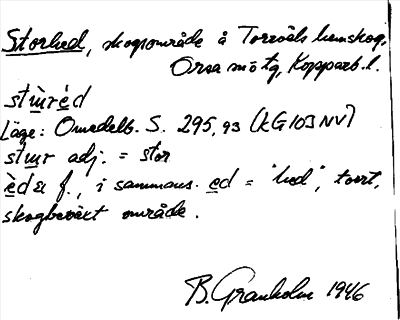 Storhed, skogsområde å Torrvåls hemskog,
Orsa sn o tg, Kopparb. l.
stu̱̇rèd
Läge: Omedelb. S. 295,93 (kG 103 NV)
stu̱r adj. = stor
è̱da f., i sammans. e̱d = "hed", torrt,
skogbeväxt område.
B. Granholm 1946